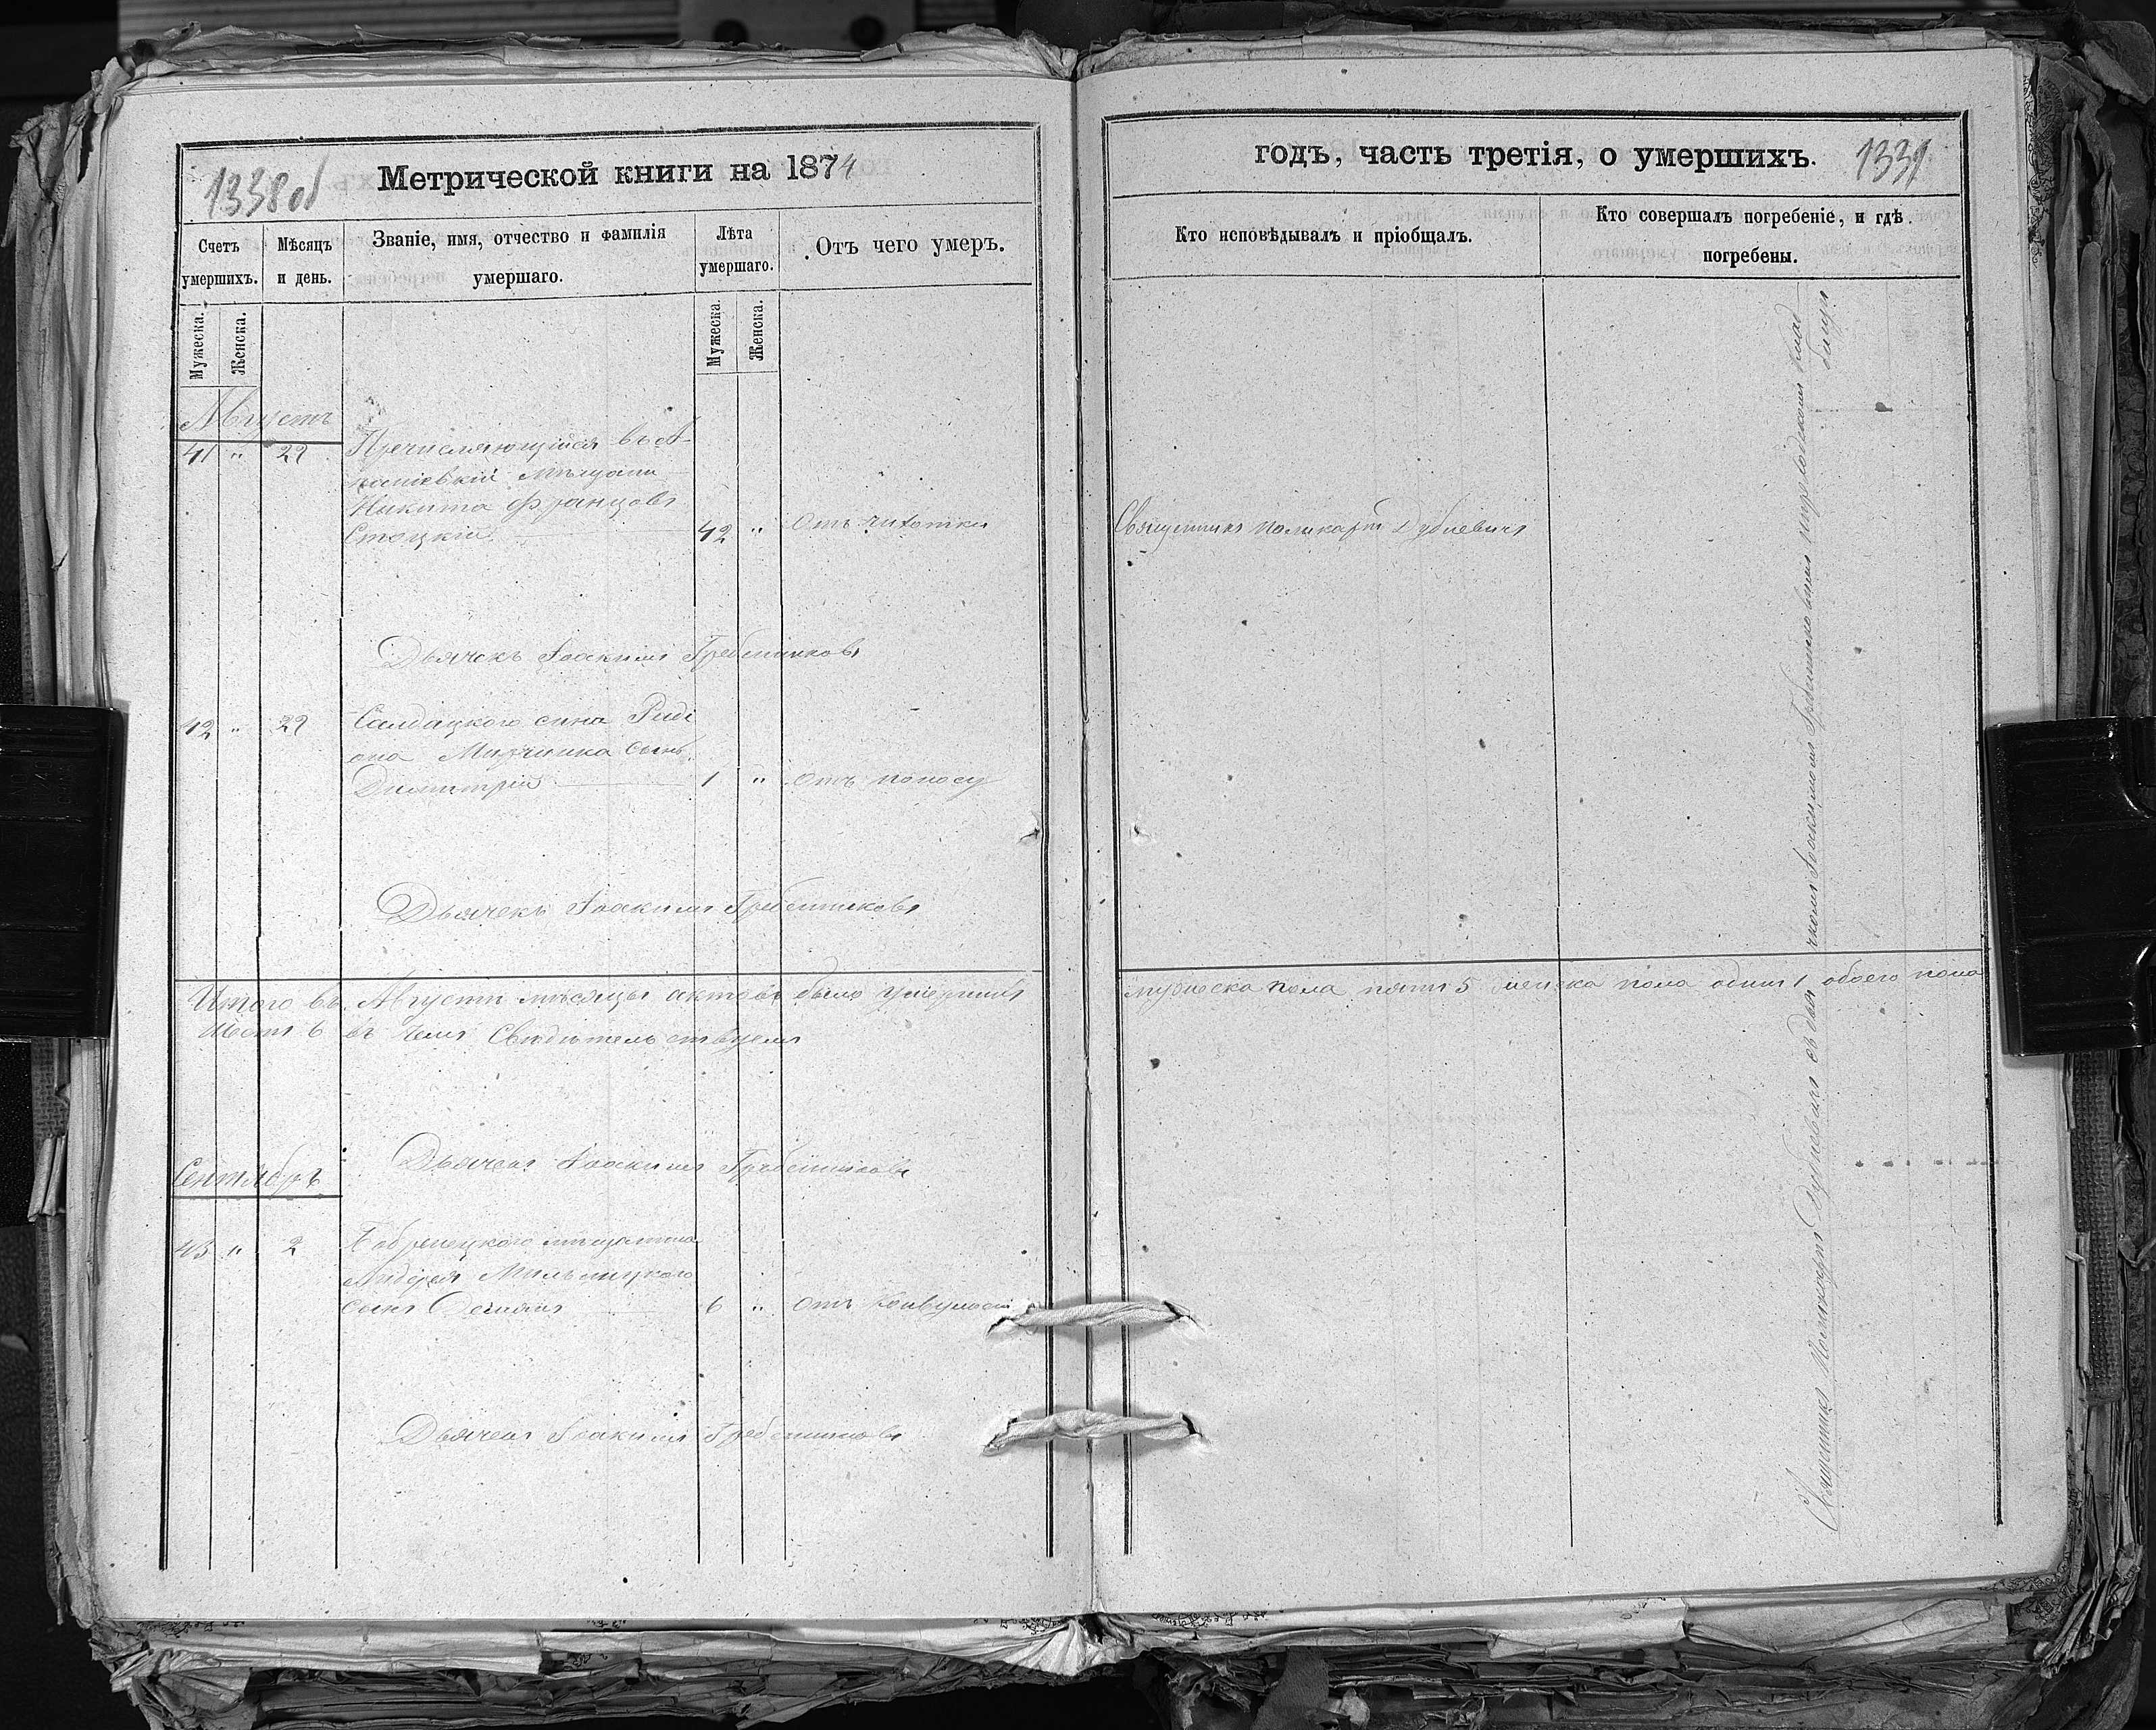 1338 об
Метрической книги на 1874
Счетъ умершихъ.
Мѣсяцъ и день.
Званіе, имя, отчество и фамилія умершаго.
Лѣта умершаго.
Отъ чего умеръ.
Мужеска.
Женска.
Мужеска
Женска.
Августъ
41 " 29 Пречисляющійся въ А-
Никита Францовъ
Стоцкій 42 " Отъ сухотки
Дьячекъ Іоакимъ Гребенниковъ
42 " 29 Салдацкого сина Риді
она сынъ
Димитрій 1 " отъ поносу
Дьячекъ Іоакимъ Гребенниковъ
Итого въ Августѣ мѣсяцы актовъ было умершихъ
шесть 6 въ чемъ Свидительствуемъ
Дьячекъ Іоакимъ Гребенниковъ
Сентябръ
43 " 2 мѣщанина
Андрея Мильницкого
сынъ 6 " отъ конвульсіи
Дьячекъ Іоакимъ Гребенниковъ
годъ, часть третія, о умершихъ.
1339
Кто исповѣдывалъ и пріобщалъ.
Кто совершалъ погребеніе, и гдѣ погребены.
Священникъ Поликарпъ Дубневичъ
мужеска пола пять 5 женска пола одинъ 1 обоего пола
Священникъ Поликарпъ Дубневичъ съ дьячкомъ Іоакимомъ Гребенниковимъ на приходскомъ клад
бищи